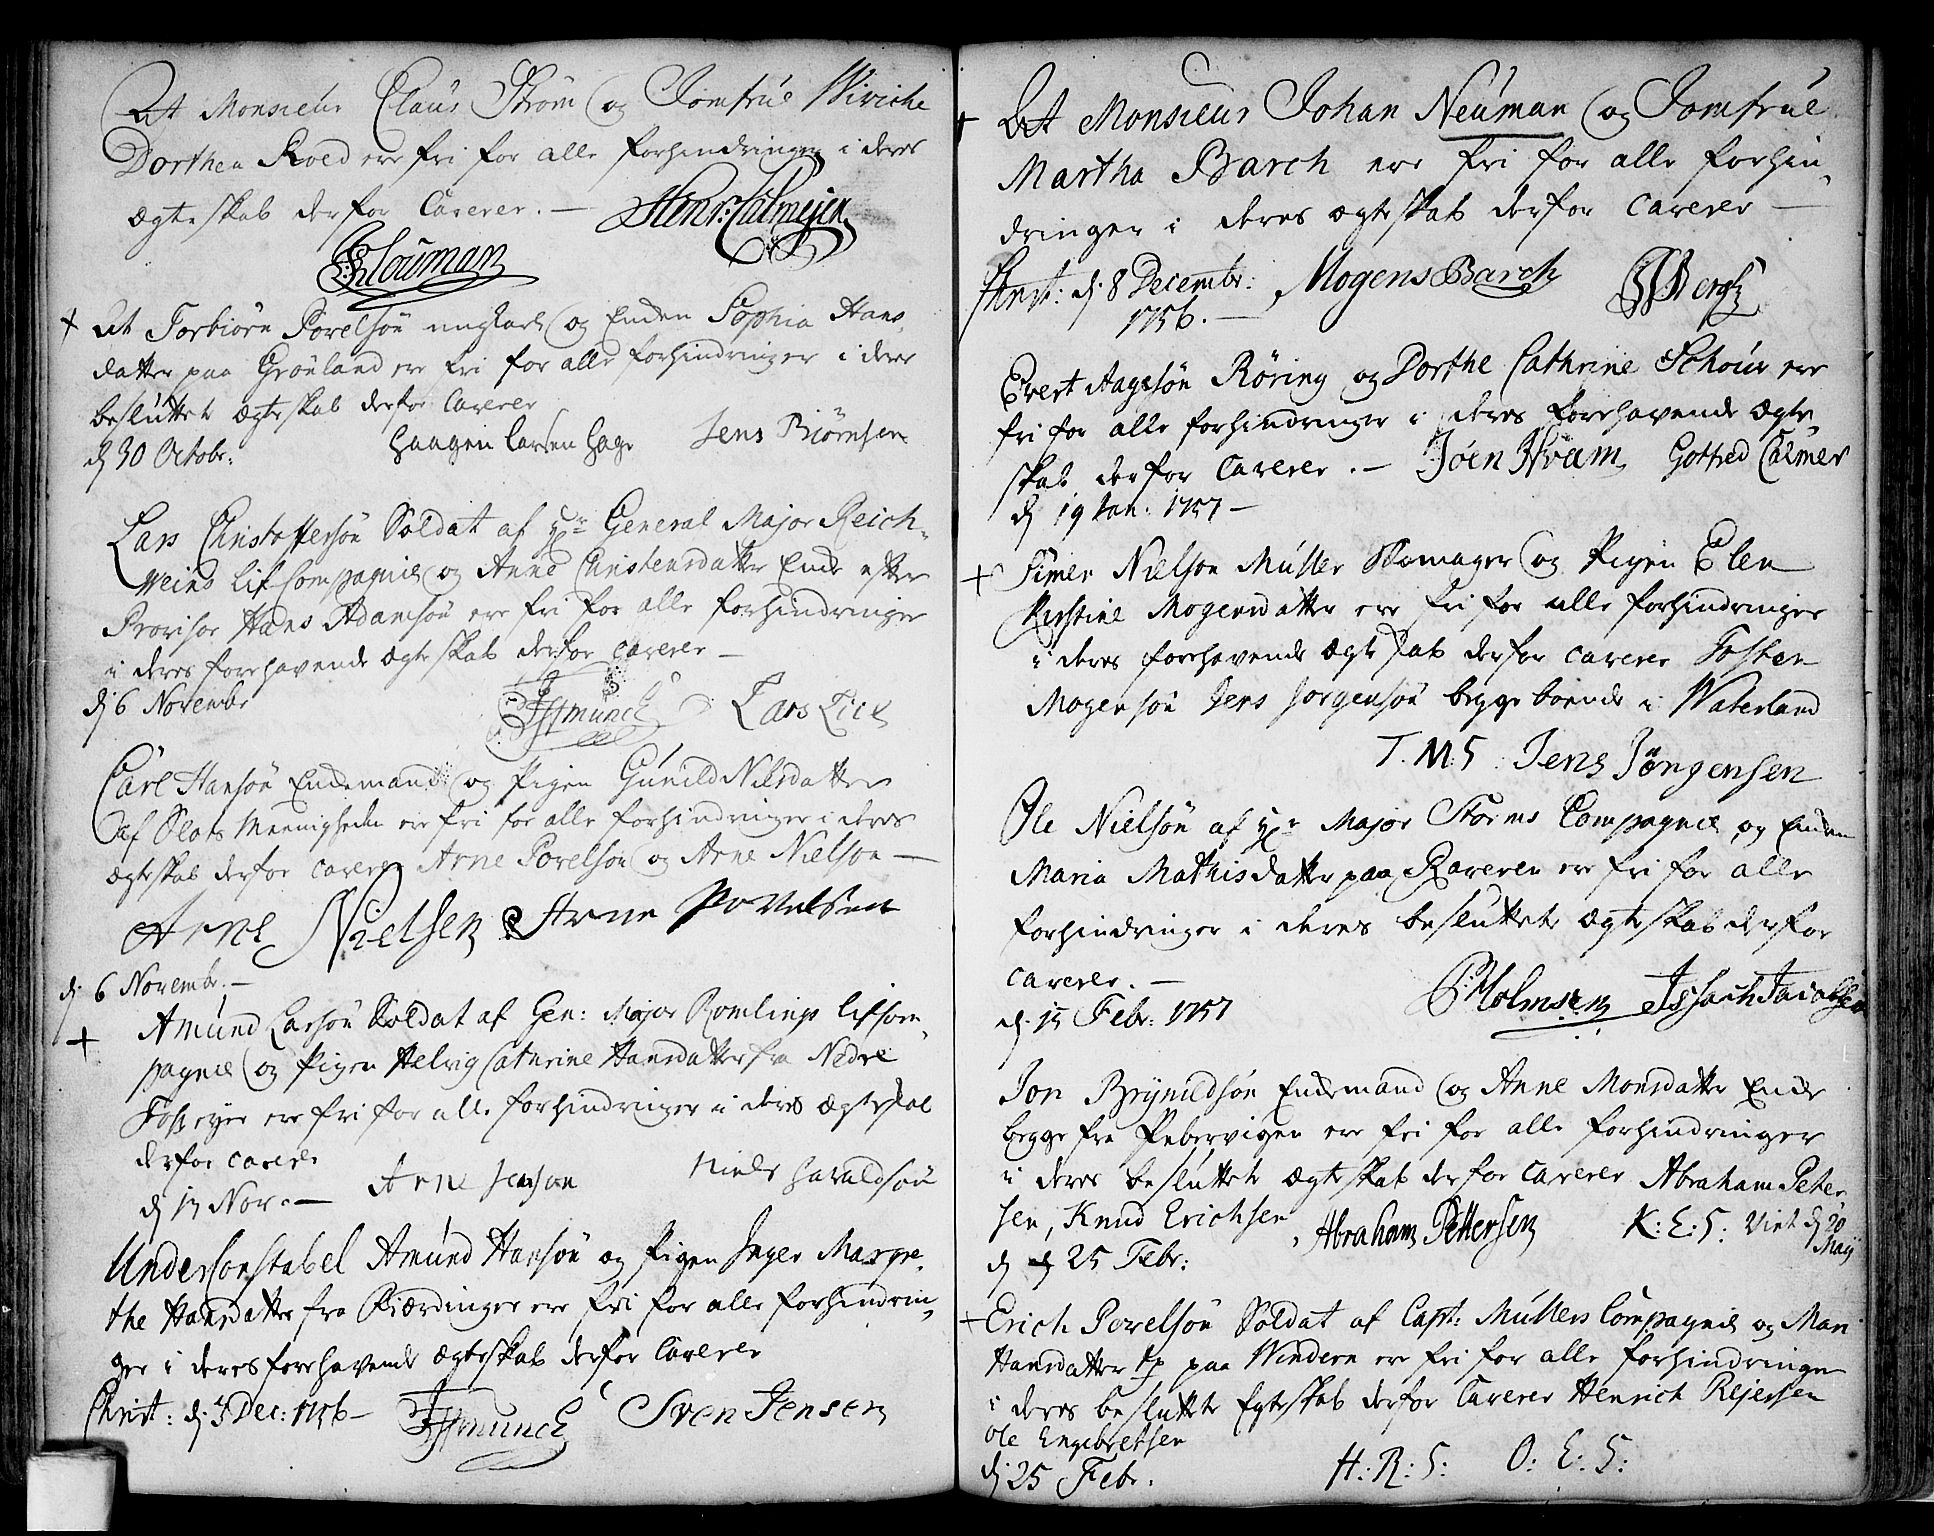 At Monsieur Claus Strøm og Jomfrue Wiviche
Dorthea Roed ere fri for alle forhindringer i deres
ægteskab derfor Caverer. —
Henr: Calmejer
Klouman
+ At Torbiörn Povelsön ungkarl og Enken Sophia Hans-
datter paa Grönland ere fri for alle forhindringer i deres
besluttet ægteskab derfor Caverer
d 30 Octobr: Haagen Larsen Hage Jens Biörnsen
Lars Christoffersön Soldat af Hr General Major Reich-
weins Lifcompagnie og Anne Christensdatter Enke efter
Provisor Hans Adamsön ere fri for alle forhindringer
i deres forehavende ægteskab derfor Caverer —
d: 6 Novembr Munch Lars Lie
Carl Hansön Enkemand og Pigen Gunild Nilsdatter
af Slots Menigheden ere fri for alle forhindringer i deres
ægteskab derfor Caverer Arne Povelsön og Arne Nielson —
Arne Nielsen Arne Povelsen
d: 6 Novembr. —
+ Amund Larsön Soldat af Gen: Major Romlings Lifcom-
pagnie og Pigen Helvig Cathrine Hansdatter fra Nedre
Foss ere fri for alle forhindringer i deres ægteskab
derfor Caverer
d 17 Nov. — Arne Jenson Niels Haraldsön
Underconstabel Amund Hansön og Pigen Inger Margre-
the Hansdatter fra Pierdinger ere fri for alle forhindrin-
ger i deres forehavende ægteskab derfor Caverer
Christ: d: 3 Dec: 1756 — Munch Sven Jensen
+ At Monsieur Johan Neuman og Jomfrue
Martha Barch ere fri for alle forhin-
dringer i deres ægteskab derfor Caverer —
Christ: d: 8 Decembr: Mogens Barch Berg
1756. —
Evert Aagesön Röring og Dorthe Cathrine Schouv ere
fri for alle forhindringer i deres forehavende ægte-
skab derfor Caverer. — Joen Hvam Gotfred Calmer
d 19 Jan: 1757 —
+ Simen Nielson Müller Skomager og Pigen Elen
Kirstine Mogensdatter ere fri for alle forhindringer
i deres forehavende ægteskab derfor Caverer Tosten
Mogensön Jens Jorgensön begge boende i Waterland
T. M S Jens Jörgensen
Ole Nielsön af Hr Major Storms Compagnie og Enken
Maria Mathisdatter paa Raveren ere fri for alle
forhindringer i deres besluttete ægteskab derfor
Caverer. —
d. 15 Febr: 1757 P: Holmsen Issach Jacobsen
Jon Brynildsön Enkemand og Anne Monsdatter Enke
begge fra Pebervigen ere fri for alle forhindringer
i deres besluttete ægteskab derfor Caverer Abraham Peter-
sen, Knud Erichsen, Abraham Pettersen K: E: S: Viet d 20 Maÿ
d 25 Febr:
+ Erich Povelsön Soldat af Capt: Müllers Compagnie og Mari
Hansdatter paa Windern ere fri for alle forhindringer
i deres besluttete Egteskab derfor Caverer Henrich Rejersen
Ole Engebretsen
d: 25 Febr. H: R: S: O: E: S: